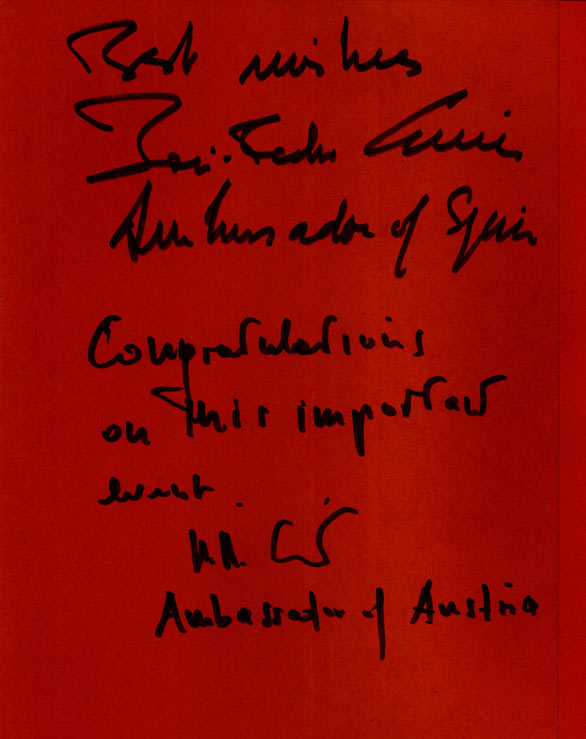 Best wishes
Ambassador of Spain
Congratulations
on this important
event
Ambassador of Austria